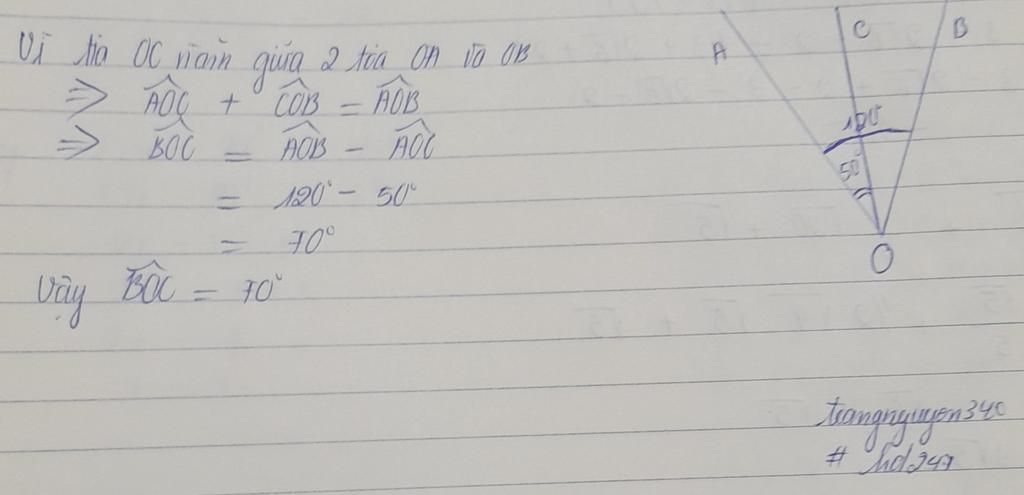 Vì tia OC nằm giữa 2 tia OA và OB
⇒ AOC + COB = AOB
⇒ BOC = AOB - AOC
= 120° - 50°
= 70°
Vậy BOC = 70°
A
C
B
120°
50°
O
trangnguyen340
# hd247